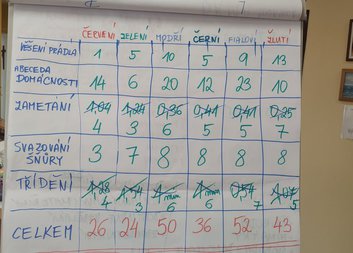 ČERVENÍ ZELENÍ MODŘÍ ČERNÍ FIALOVÍ ŽLUTÍ
VĚŠENÍ PRÁDLA 1 5 10 5 9 13
ABECEDA
DOMÁCNOSTI 14 6 20 12 23 10
ZAMETÁNÍ 1,04 1,24 0,36 0,41 0,41 0,25
4 3 6 5 5 7
SVAZOVÁNÍ
ŠŇŮRY 3 7 8 8 8 8
TŘÍDĚNÍ 1,28 1,54 1 min 1 min 0,54
4 3 6 6 7 5
CELKEM 26 24 50 36 52 43